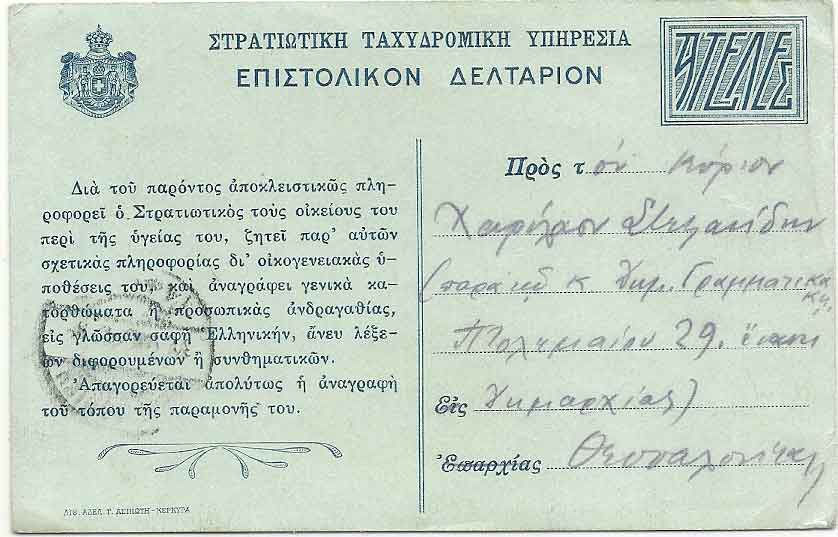 ΣΤΡΑΤΙΩΤΙΚΗ ΤΑΧΥΔΡΟΜΙΚΗ ΥΠΗΡΕΣΙΑ
ΕΠΙΣΤΟΛΙΚΟΝ ΔΕΛΤΑΡΙΟΝ
ΑΤΕΛΕΣ
Διὰ τοῦ παρόντος ἀποκλειστικῶς πλη-
ροφορεῖ ὁ Στρατιωτικὸς τοὺς οἰκείους του
περὶ τῆς ὑγείας του, ζητεῖ παρ' αὐτῶν
σχετικὰς πληροφορίας δι' οἰκογενειακὰς ὑ-
ποθέσεις του, καὶ ἀναγράφει γενικὰ κα-
τορθώματα ἢ προσωπικὰς ἀνδραγαθίας,
εἰς γλῶσσαν σαφῆ Ἑλληνικήν, ἄνευ λέξε-
ων διφορουμένων ἢ συνθηματικῶν.
Ἀπαγορεύεται ἀπολύτως ἡ ἀναγραφὴ
τοῦ τόπου τῆς παραμονῆς του.
ΛΙΘ. ΑΔΕΛ. Γ. ΑΣΠΙΩΤΗ - ΚΕΡΚΥΡΑ
Πρὸς τὸν Κύριον
Χαρίλαον
(παρὰ κ Δημ. Γραμματικα
Πτολεμαίου 29. ἔναντι
Εἰς Δημαρχίας)
Ἐπαρχίας Θεσσαλονίκην